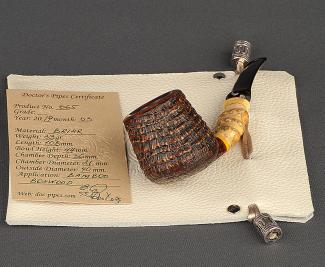 Doctor's Pipes Certificate
Product No. 065
Grade:
Year: 2019 month: 03
Material: BRIAR
Weight: 39 gr.
Length: 108 mm.
Bowl Height: 44 mm.
Chamber Depth: 36 mm.
Chamber Diameter: 21 mm.
Outside Diameter: 40 mm.
Application: BAMBOO
BOXWOOD
Web: doc-pipes.com